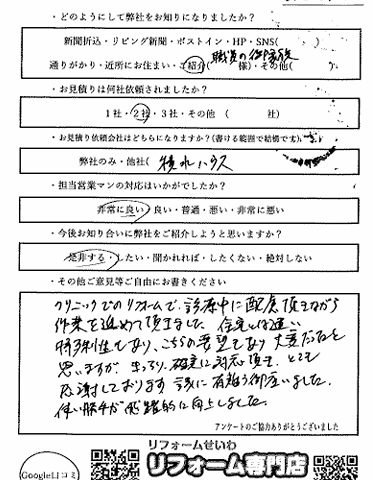 ・どのようにして弊社をお知りになりましたか？
新聞折込・リビング新聞・ポストイン・HP・SNS(
職員の御家族
通りがかり・近所にお住まい・ご紹介( 様)・その他(
・お見積りは何社依頼されましたか？
1社・2社・3社・その他 ( 社)
・お見積り依頼会社はどちらになりますか？(書ける範囲で結構です)
弊社のみ・他社( 積水ハウス
・担当営業マンの対応はいかがでしたか？
非常に良い・良い・普通・悪い・非常に悪い
・今後お知り合いに弊社をご紹介しようと思いますか？
是非する・したい・聞かれれば・したくない・絶対しない
・その他ご意見等ご自由にお書きください
クリニックでのリフォームで、診療中に配慮頂きながら
作業を進めて頂きました。住宅とは違い
特殊性もあり、こちらの要望もあり大変だったと
思いますが、きっちり、確実に対応頂き、とても
感謝しております。誠に有難う御座いました。
使い勝手が飛躍的に向上しました。
アンケートのご協力ありがとうございました
リフォームせいわ
リフォーム専門店
Google口コミ